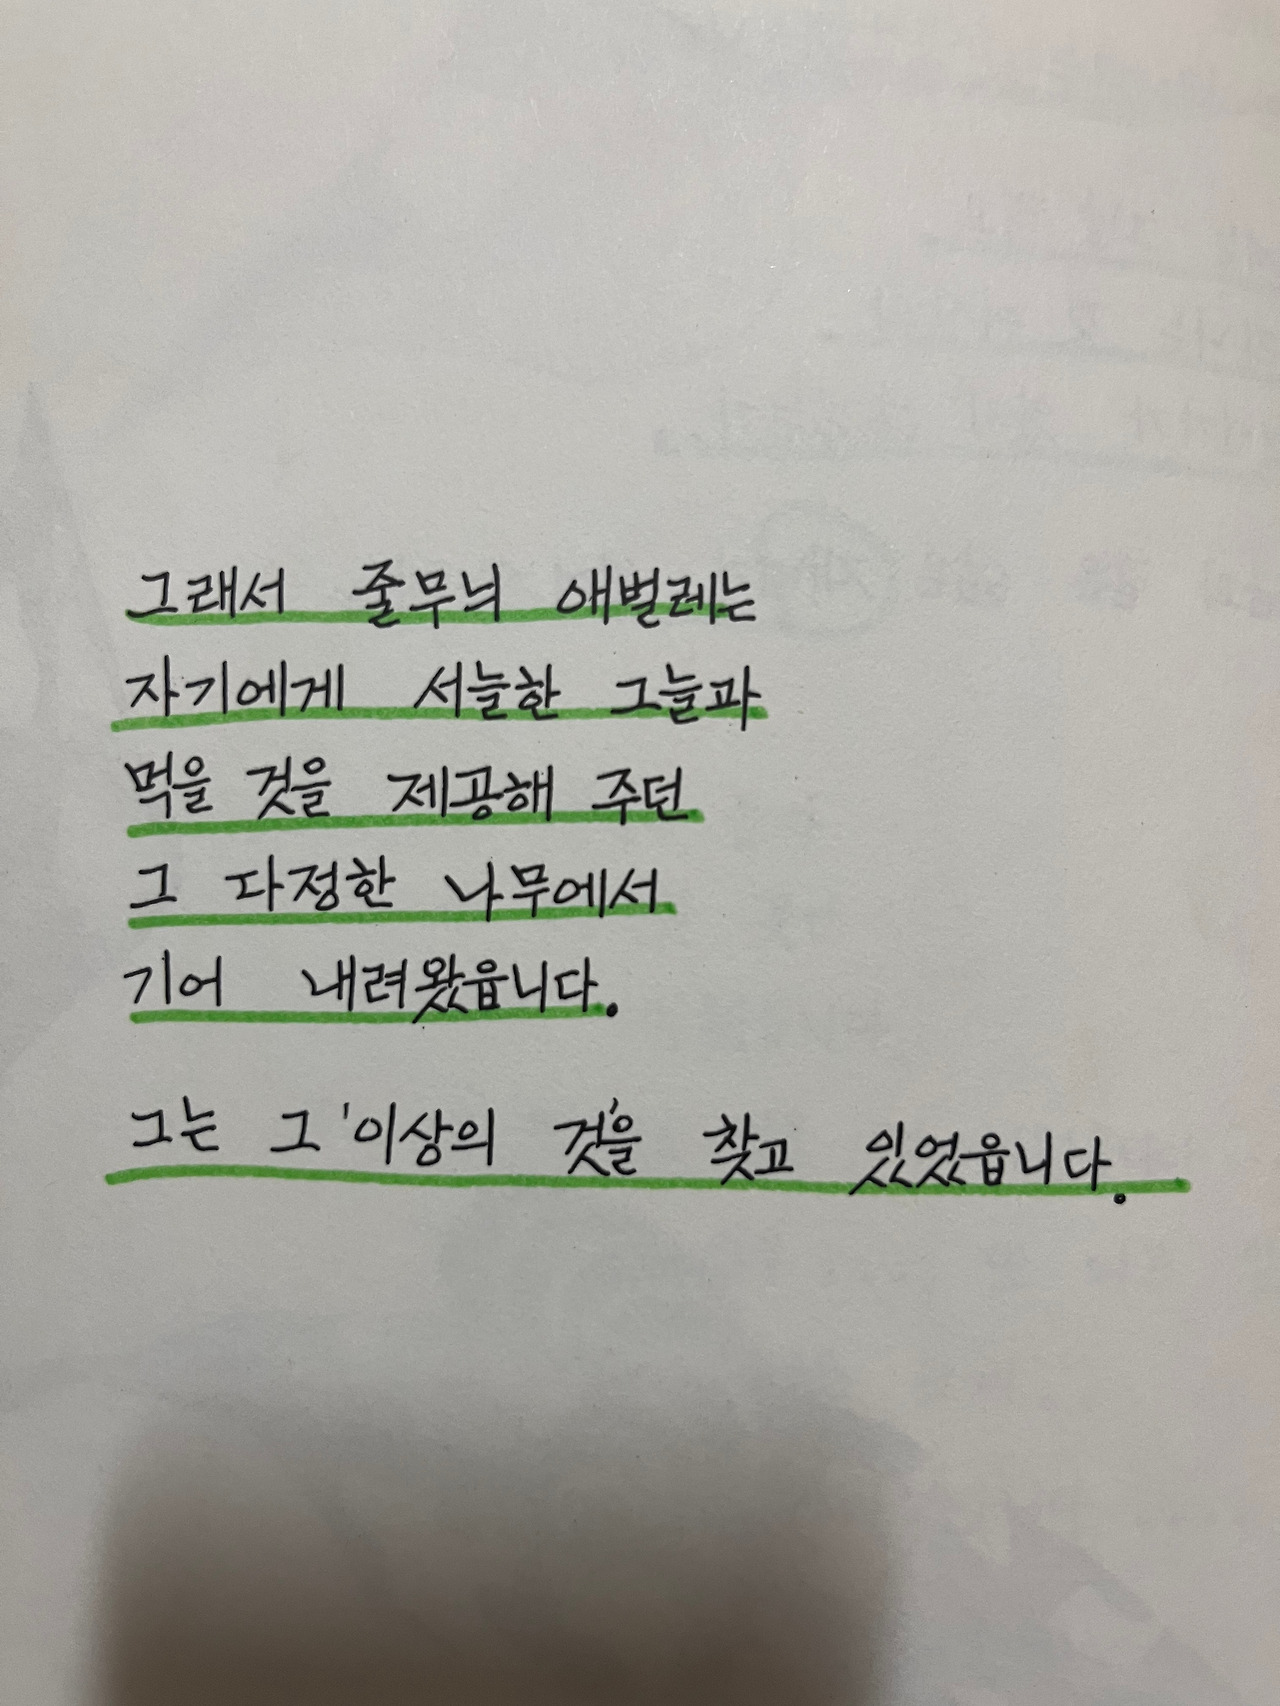 그래서 줄무늬 애벌레는
자기에게 서늘한 그늘과
먹을 것을 제공해 주던
그 다정한 나무에서
기어 내려왔읍니다.
그는 그 '이상의 것'을 찾고 있었읍니다.